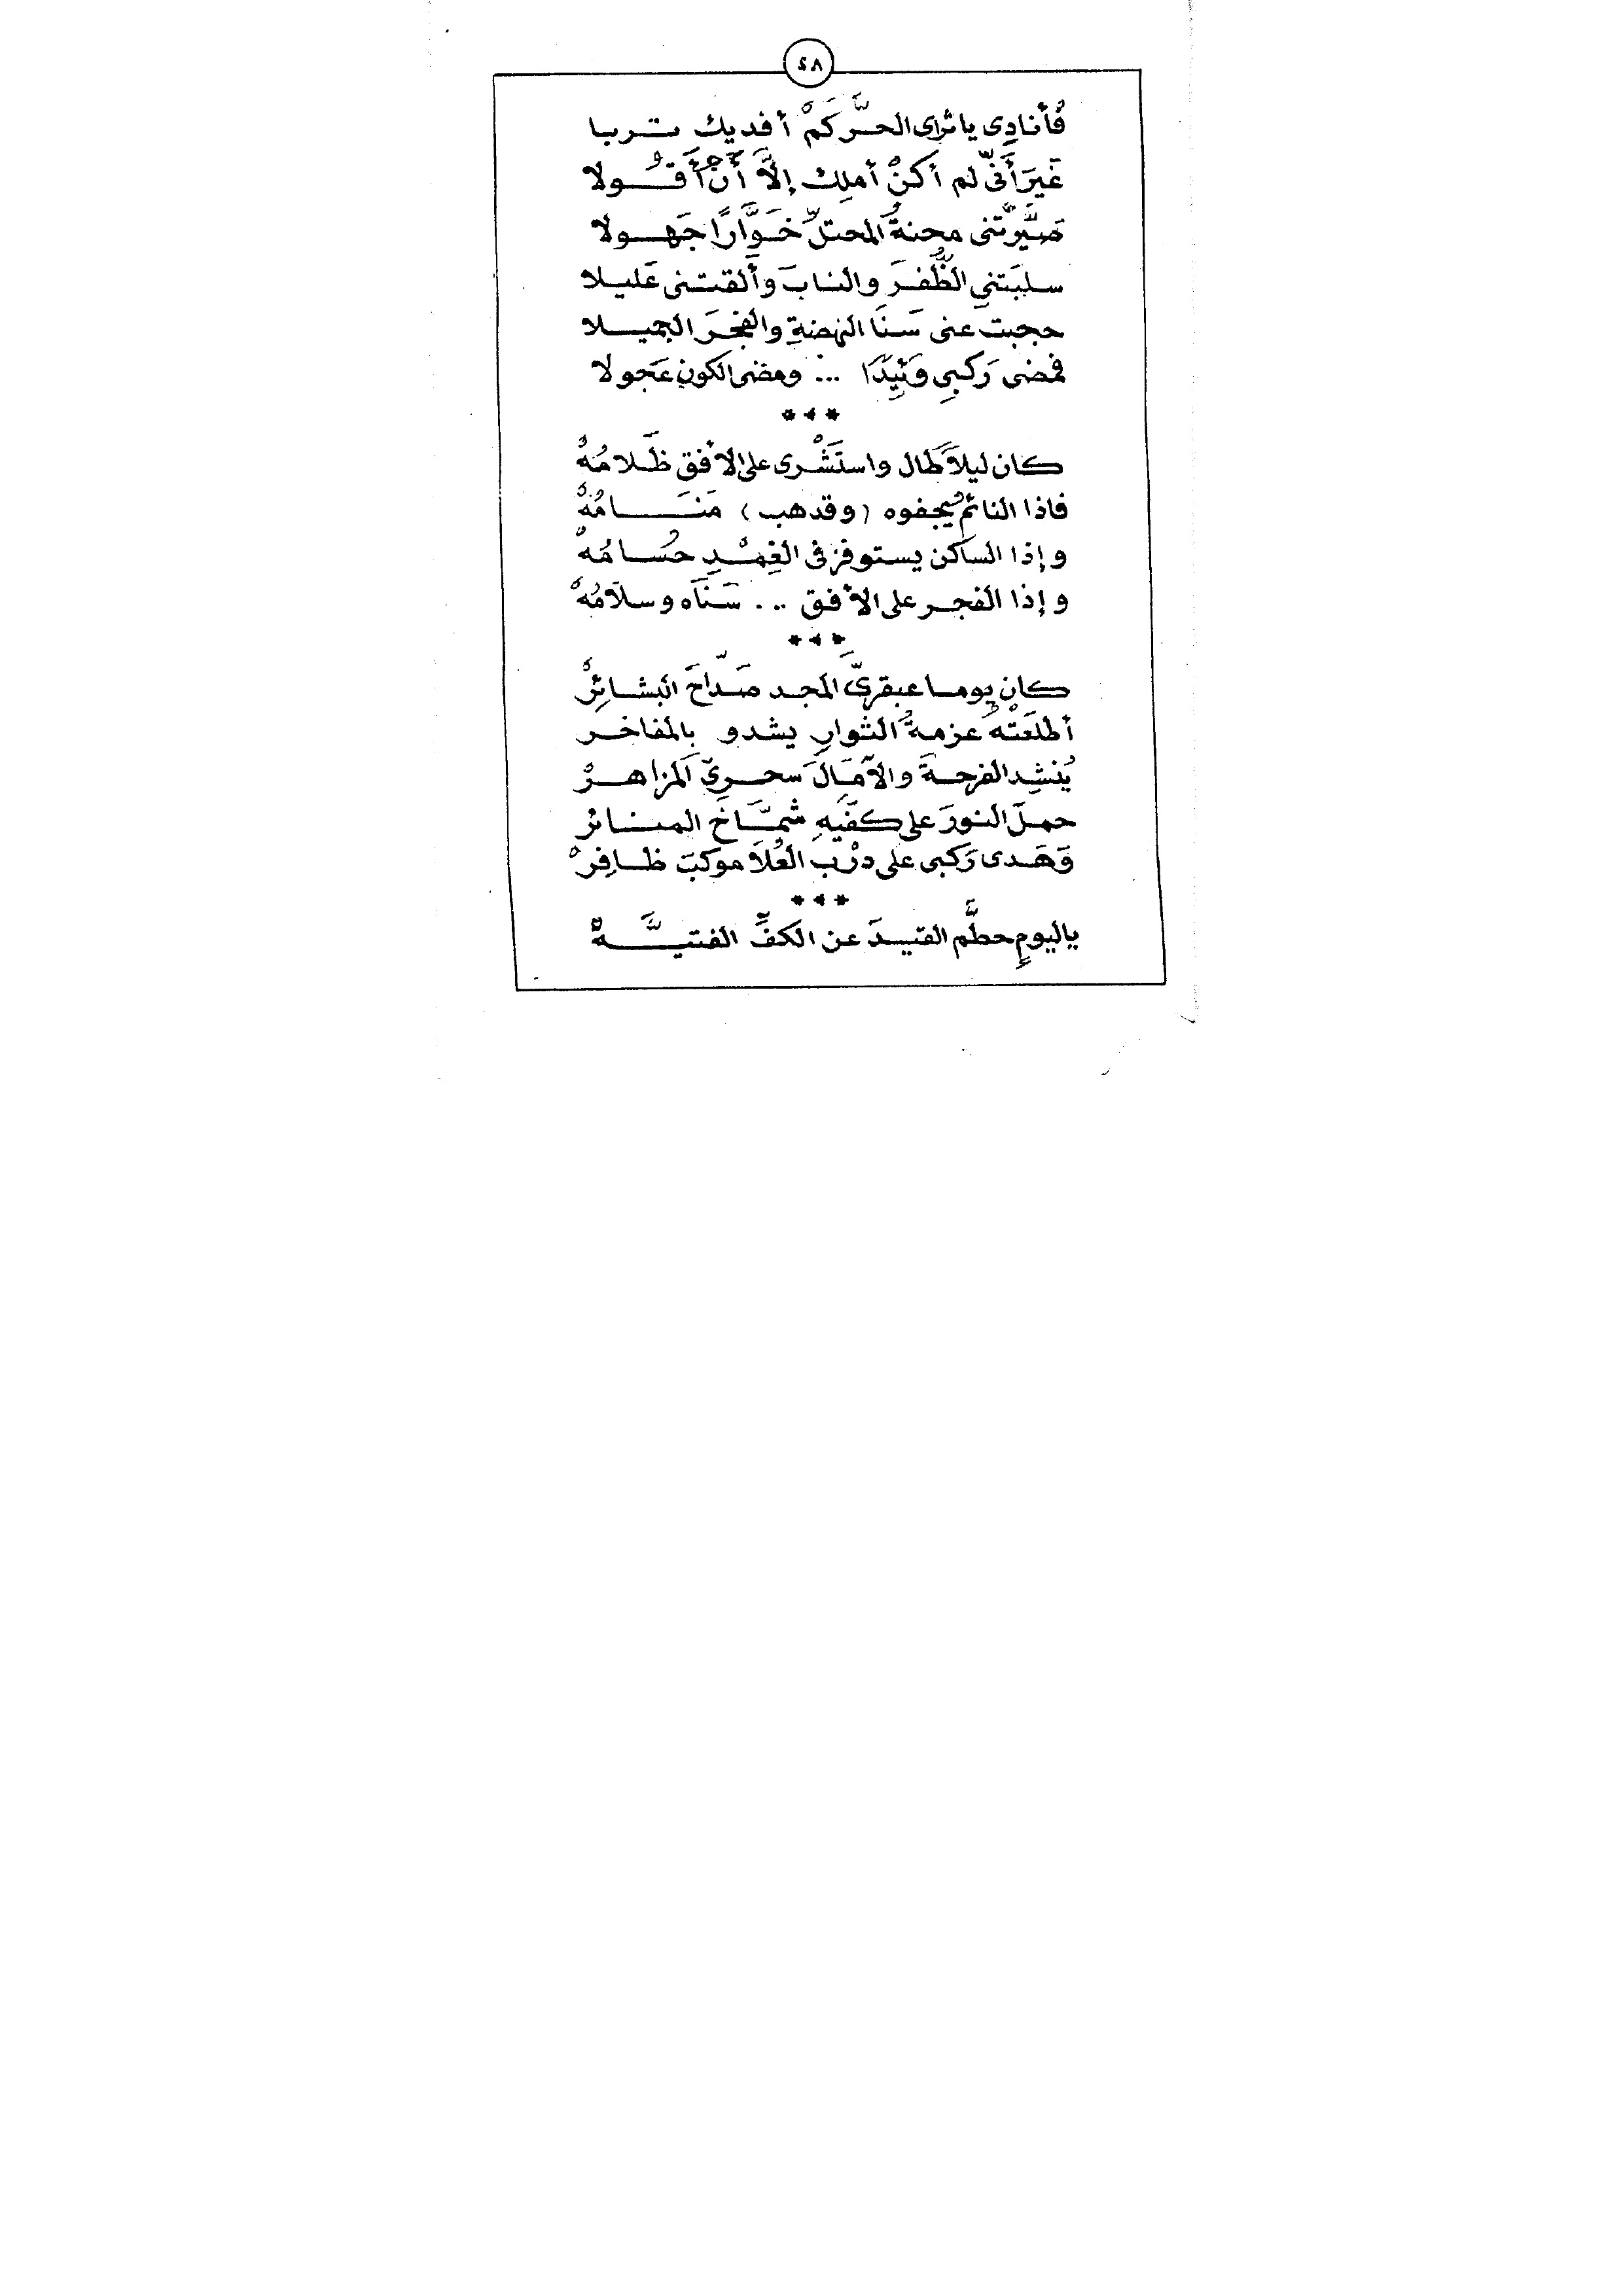 ٤٨
فأنادِى ياثراى الحرَّ كَمْ أفديك تربا
غَيرَ أَنّى لم أكنْ أملِك إلاَّ أَنْ أَقُولا
صَيَّرتْنى محنةُ المحتلِّ خَوَّارًا جَهولا
سلبَتنىِ الظُّفرَ والنابَ وأَلقتنى عَليلا
حجبت عنى سَنَا النهضةِ والفجرَ الجميلا
فمضى رَكبىِ وَئيِدًا ... ومضى الكون عَجولا
* * *
كان ليلاً طَال واستَشْرى على الأفق ظَلامُهْ
فاذا النائمُ يجفوه (وقدهب) مَنَامُهْ
وإذا الساكن يستوفز فى الغِمْدِ حُسامُهْ
وإذا الفجر على الأفق ... سَنَاه وسلاَمُهْ
* * *
كان يوما عبقرىَّ المجد صَدّاحَ البشائِرْ
أطلعَتْهُ عزمةُ الثوارِ يشدو بالمفاخر
يُنشِد الفرحةَ والآمَالَ سحرىِّ المزاهرْ
حملَ النورَ على كفّيَهِ شمَّاخَ المنائر
وَهَدى رَكبى على درْب العُلاَ موكبَ ظافِرْ
* * *
ياليومٍ حطَّم القيدَ عن الكفِّ الفتيَّةْ